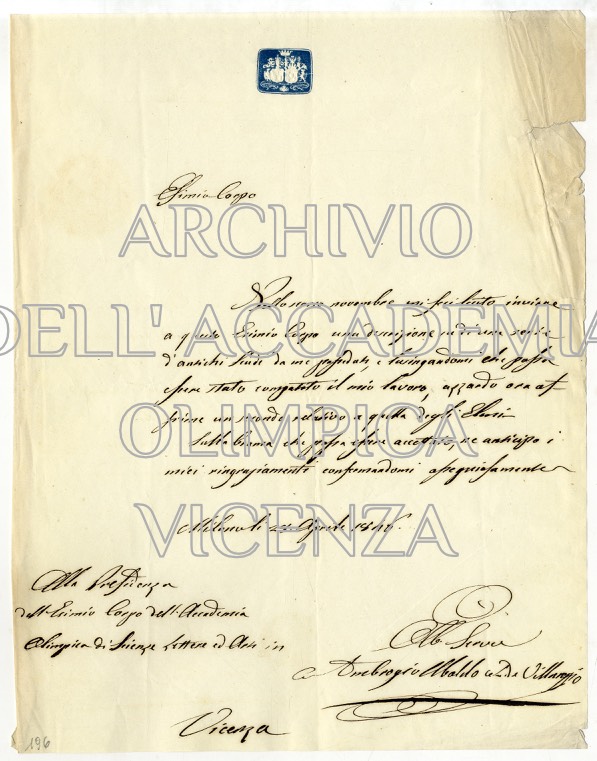 Esimio Corpo
Nello scorso novembre mi feci lecito inviare
a questo Esimio Corpo una descrizione ed una serie
d'antichi Scudi da me posseduti, e lusingandomi che possa
essere stato compatito il mio lavoro, azzardo ora of
frirne un secondo relativo a quella degli Elmi
Sulla brama che possa essere accettato, ne anticipo i
miei ringraziamenti confermandomi ossequiosamente
Milano li 24 Aprile
Alla Presidenza
dell'Esimio Corpo dell'Accademia
Olimpica di Scienze Lettere ed Arti in
Vicenza
Obb. Servre
Ambrogio Uboldo de Villareggio
196
ARCHIVIO
DELL'ACCADEMIA
OLIMPICA
VICENZA